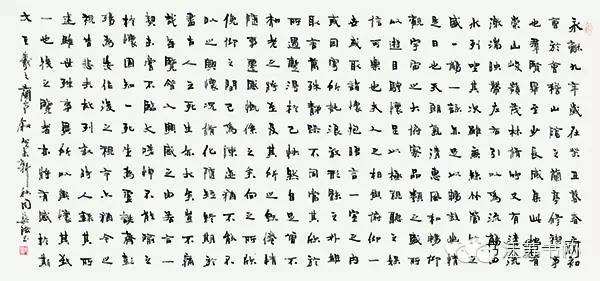 永龢九年歲在癸丑暮春之初
會於會稽山陰之蘭亭脩禊事
也羣賢畢至少長咸集此地有
崇山峻嶺茂林脩竹又有清流
激湍映帶左右引以為流觴曲
水列坐其次雖無絲竹管弦之
盛一觴一詠亦足以暢敘幽情
是日也天朗氣清惠風和暢仰
觀宇宙之大俯察品類之盛所
以遊目騁懷足以極視聽之娛
信可樂也夫人之相與俯仰一
世或取諸懷抱悟言一室之內
或因寄所託放浪形骸之外雖
取舍萬殊靜躁不同當其欣於
所遇暫得於己快然自足不知
老之將至及其所之既惓情
隨事遷感慨係之矣向之所欣
俛仰之間已為陳迹猶不能不
以之興懷況脩短隨化終期於
盡古人云死生亦大矣豈不痛
哉每攬昔人興感之由若合一
契未嘗不臨文嗟悼不能喻之
於懷固知一死生為虛誕齊彭
殤為妄作後之視今亦由今之
視昔悲夫故列敘時人錄其所
述雖世殊事異所以興懷其致
一也後之覽者亦將有感於斯
文 王羲之蘭亭敘
书法第书网